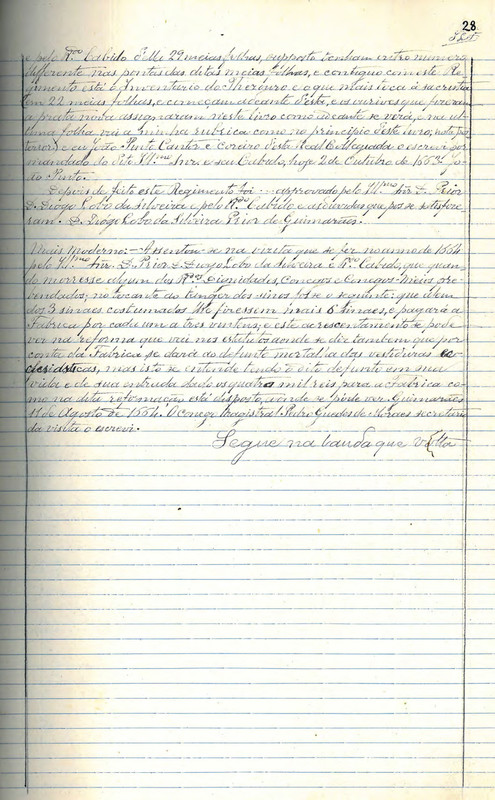 28.
e pelo R.do Cabido. Tem 29 meias folhas, supposto tenham outro numero
differente nas pontas das ditas meias folhas, e contiguo com este Re-
gimento está o Inventario do Thezouro, e o que mais toca á sacristia
em 22 meias folhas, e começam adeante d'esta, e os ourives que pezaram
a prata nova assignaram neste livro como adeante se verá, e na ul-
tima folha vai a minha rubrica como no principio d'este livro, noto pos-
terior; e eu João Cantor e Coreiro d'esta Real Collegiada o escrevi por
mandado do dito Ill.mo Snr. e seu Cabido, hoje 2 de Outubro de 1663. Jo-
ão Pinto.
Depois de feito este Regimento foi approvado pelo Ill.mo Snr. D. Prior
D. Diogo Lobo da Silveira e pelo R.do Cabido e as duvidas que poz se satisfize-
ram. D. Diogo Lobo da Silveira Prior de Guimarães.
Mais Moderno:- Assentou-se na vizita que se fez no anno de 1664
pelo Ill.mo Snr. D. Prior D. Diogo Lobo da Silveira e R.do Cabido, que quan-
do morresse algum dos R.dos Dignidades, Conegos e Conegos-Meios pre-
bendados; no tocante ao tanger dos sinos que alem
dos 3 sinaes costumados lhe fizessem mais 6 sinaes, e pagará a
Fabrica por cada um a tres vintens; e este acrescentamento se pode
ver na reforma que vai nos estatutos aonde se diz tambem que por
conta da Fabrica se dará ao defunto mortalha das vestiduras ec-
clesiasticas, mas isto se entende tendo o dito defunto em sua
vida e de sua entrada dado os quatro mil reis para a Fabrica co-
mo na dita reformação está disposto, aonde se pode ver. Guimarães
11 de Agosto de 1664. O conego Magistral Pedro Guedes de Moraes secretario
da visita o escrevi.
Segue na lauda que volta